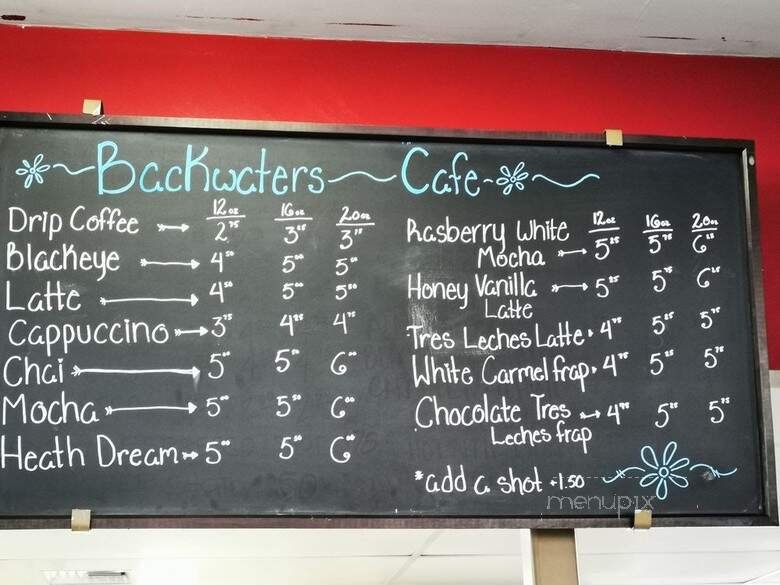 Backwaters Cafe
12oz 16oz 20oz
Drip Coffee 2⁷⁵ 3²⁵
Blackeye 4⁵⁰ 5⁰⁰ 5⁵⁰
Latte 4⁵⁰ 5⁰⁰ 5⁵⁰
Cappuccino 3⁷⁵ 4²⁵ 4⁷⁵
Chai 5⁰⁰ 5⁵⁰ 6⁰⁰
Mocha 5⁰⁰ 5⁵⁰ 6⁰⁰
Heath Dream 5⁰⁰ 5⁵⁰ 6⁰⁰
12oz 16oz 20oz
Rasberry White
Mocha 5²⁵ 5⁷⁵ 6²⁵
Honey Vanilla 5²⁵ 5⁷⁵ 6²⁵
Latte
Tres Leches Latte 4⁷⁵ 5²⁵ 5⁷⁵
White Carmel frap 4⁷⁵ 5²⁵ 5⁷⁵
Chocolate Tres 4⁷⁵ 5²⁵ 5⁷⁵
Leches frap
*add a shot +1.50
menupix